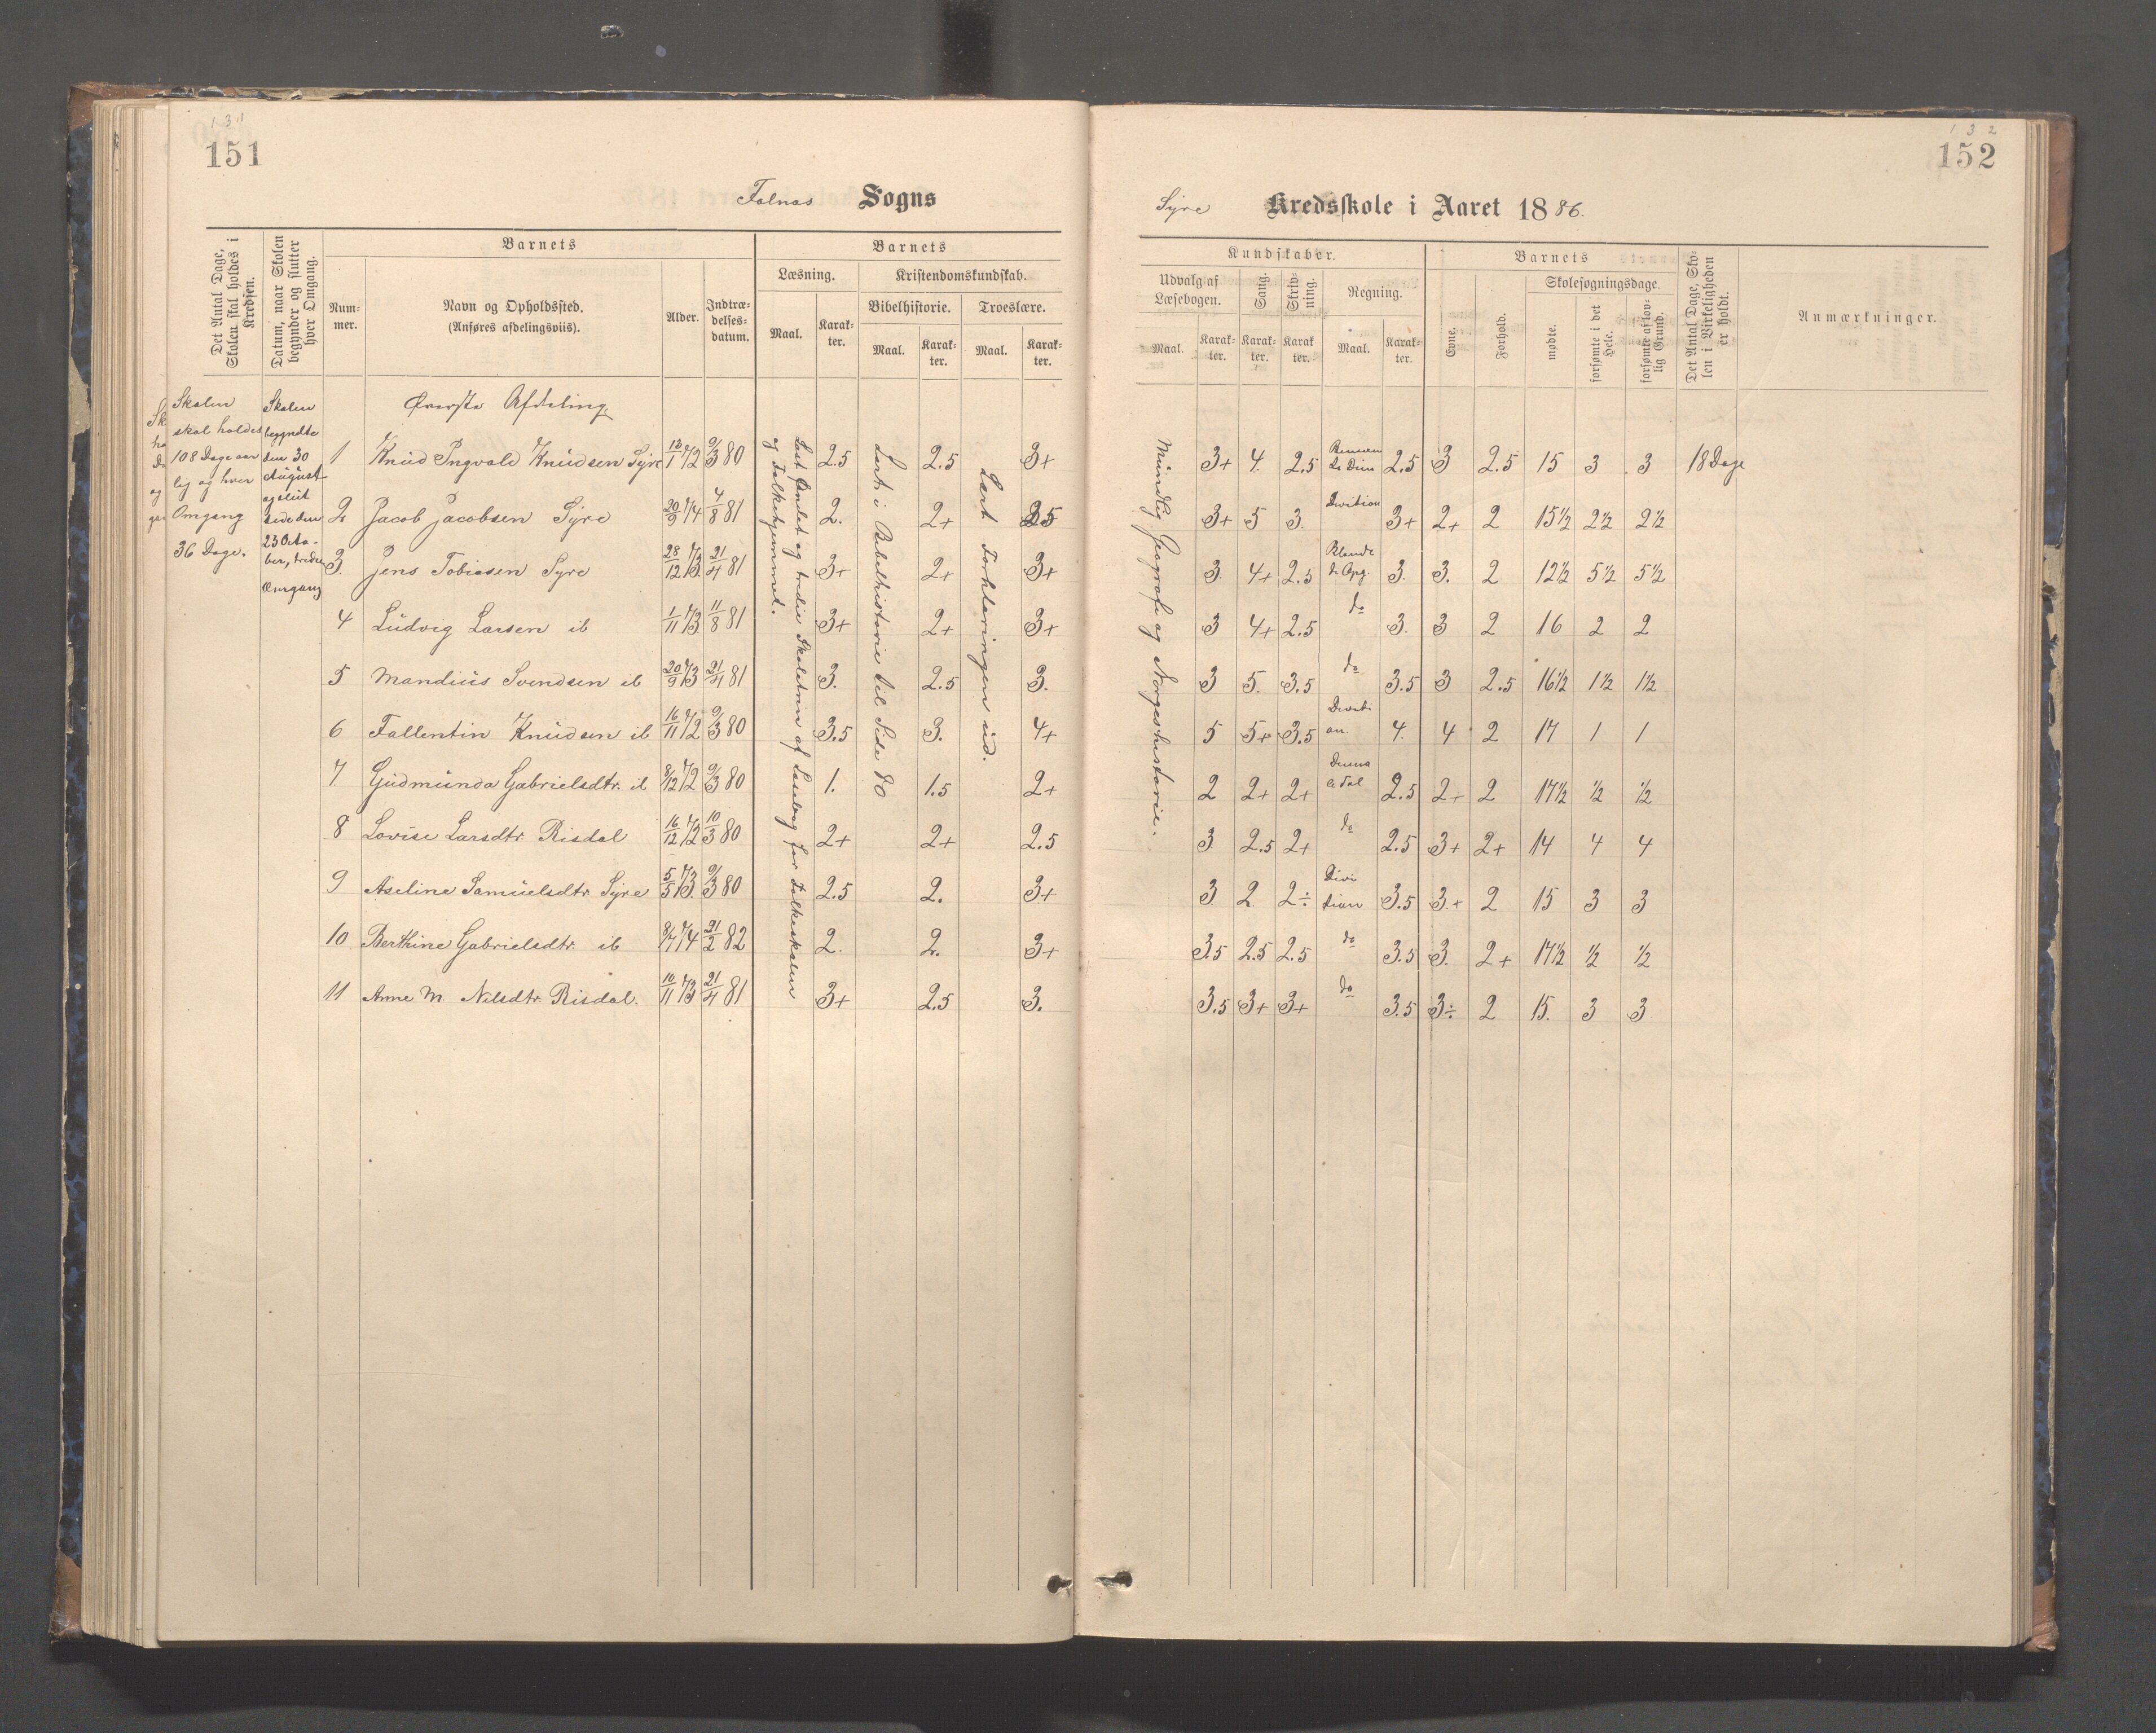 131
151
Falnæs Sogns
Det Antal Dage, Skolen skal holdes i Kredsen.
Datum, naar Skolen begynder og slutter hver Omgang.
Barnets
Nummer.
Navn og Opholdssted.
(Anføres afdelingsviis).
Alder.
Indtrædelsesdatum.
Barnets
Læsning.
Maal.
Karakter.
Kristendomskundskab.
Bibelhistorie.
Maal.
Karakter.
Troeslære.
Maal.
Karakter.
Skolen
skal holdes
108 Dage aar
lig og hver
Omgang
36 Dage.
Skolen
begyndte
den 30
August
og slut
tede den
23 Octo-
ber, tredie
Omgang
Øverste Afdeling
1 Knud Ingvald Knudsen Syre 13/1 72 9/3 80 2.5 2.5 3+
2 Jacob Jacobsen Syre 20/9 74 4/8 81 2. 2+ 3.5
3. Jens Tobiasen Syre 28/12 73 21/4 81 3+ 2+ 3+
4 Ludvig Larsen ib 1/11 73 11/8 81 3+ 2+ 3+
5 Mandius Svendsen ib 20/9 73 21/4 81 3. 2.5 3.
6 Fallentin Knudsen ib 16/11 72 9/3 80 3.5 3. 4+
7 Gudmunda Gabrielsdtr. ib 8/12 72 9/3 80 1. 1.5 2+
8 Lovise Larsdtr. Risdal 16/12 72 10/3 80 2+ 2+ 2.5
9 Aseline Samuelsdtr Syre 5/5 73 9/3 80 2.5 2. 3+
10 Berthine Gabrielsdtr. ib 8/7 74 21/2 82 2. 2. 3+
11 Anne M. Nilsdtr. Risdal. 10/11 73 21/4 81 3+ 2.5 3.
Læst Andet og tredie Skoletrin af Læsebog for Folkeskolen
og Folkehjemmet.
Lært i Bibelhistorie til Side 80
Lært Forklaringen ud.
132
152
Syre Kredsskole i Aaret 1886.
Kundskaber.
Udvalg af Læsebogen.
Maal.
Karakter.
Sang.
Karakter.
Skrivning.
Karakter.
Regning.
Maal.
Karakter.
Barnets
Evne.
Forhold.
Skolesøgningsdage.
mødte.
forsømte i det Hele.
forsømte af lovlig Grund.
Det Antal Dage, Skolen i Virkeligheden er holdt.
Anmærkninger.
Mundtlig Geografi og Norgeshistorie.
3+ 4. 2.5 2.5 3 2.5 15 3 3 18 Dage
3+ 5 3. Division 3+ 2+ 2 15½ 2½ 2½
3. 4+ 2.5 Blande de Opg. 3. 3. 2 12½ 5½ 5½
3 4+ 2.5 do 3. 3 2 16 2 2
3 5. 3.5 do 3.5 3 2.5 16½ 1½ 1½
5 5+ 3.5 Divisi on. 4. 4 2 17 1 1
2 2+ 2+ 2.5 2+ 2 17½ ½ ½
3 2.5 2+ do 2.5 3+ 2+ 14 4 4
3 2 2÷ Divi sion 3.5 3+ 2 15 3 3
3.5 2.5 2.5 do 3.5 3. 2+ 17½ ½ ½
3.5 3+ 3+ do 3.5 3÷ 2 15. 3 3